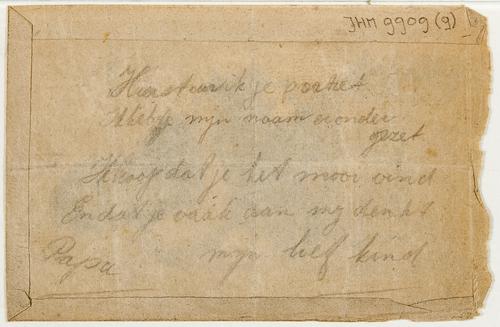 JHM 9909 (9)
Hier stuur ik je portret
Ik heb je mijn naam eronder
gezet
Ik hoop dat je het mooi vind
En dat je vaak aan mij denkt
mijn lief kind
Papa